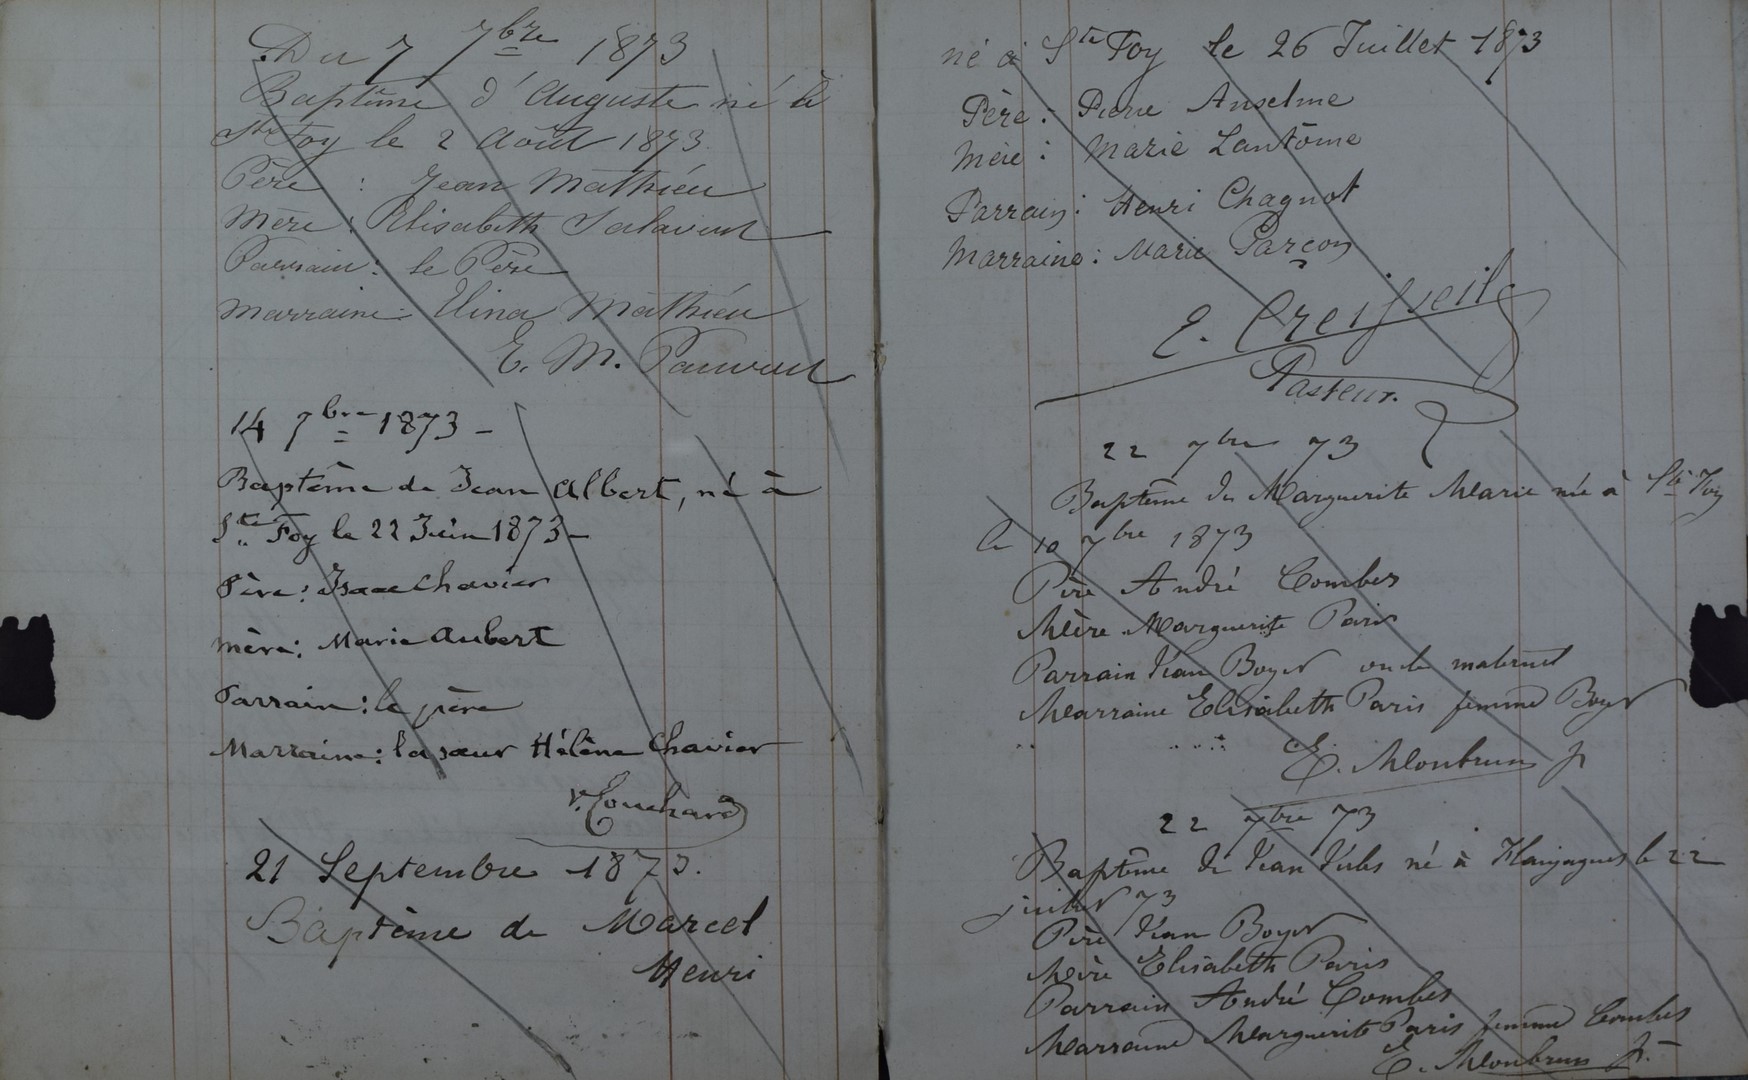 Du 7 7bre 1873
Baptême d'Auguste né à
Ste Foy le 2 Août 1873.
Père : Jean Mathieu
Mère : Elisabeth
Parrain : le Père
Marraine : Elina Mathieu
E. M.
14 7bre 1873 -
Baptême de Jean Albert, né à
Ste Foy le 22 Juin 1873 -
Père : Isaac Chavier
Mère : Marie Aubert
Parrain : le père
Marraine : la sœur Hélène Chavier
V. Couchard
21 Septembre 1873.
Baptême de Marcel
Henri
né à Ste Foy le 26 Juillet 1873
Père : Pierre Anselme
Mère : Marie Lantôme
Parrain : Henri Chagnot
Marraine : Marie Parçon
E.
Pasteur.
22 7bre 73
Baptême de Marguerite Marie née à Ste Foy
le 10 7bre 1873
Père André Combes
Mère Marguerite Paris
Parrain Jean Boyer oncle maternel
Marraine Elisabeth Paris femme Boyer
E. Monbrun Jr
22 7bre 73
Baptême de Jean Jules né à le 22
juillet 73
Père Jean Boyer
Mère Elisabeth Paris
Parrain André Combes
Marraine Marguerite Paris femme Combes
E. Monbrun Jr.